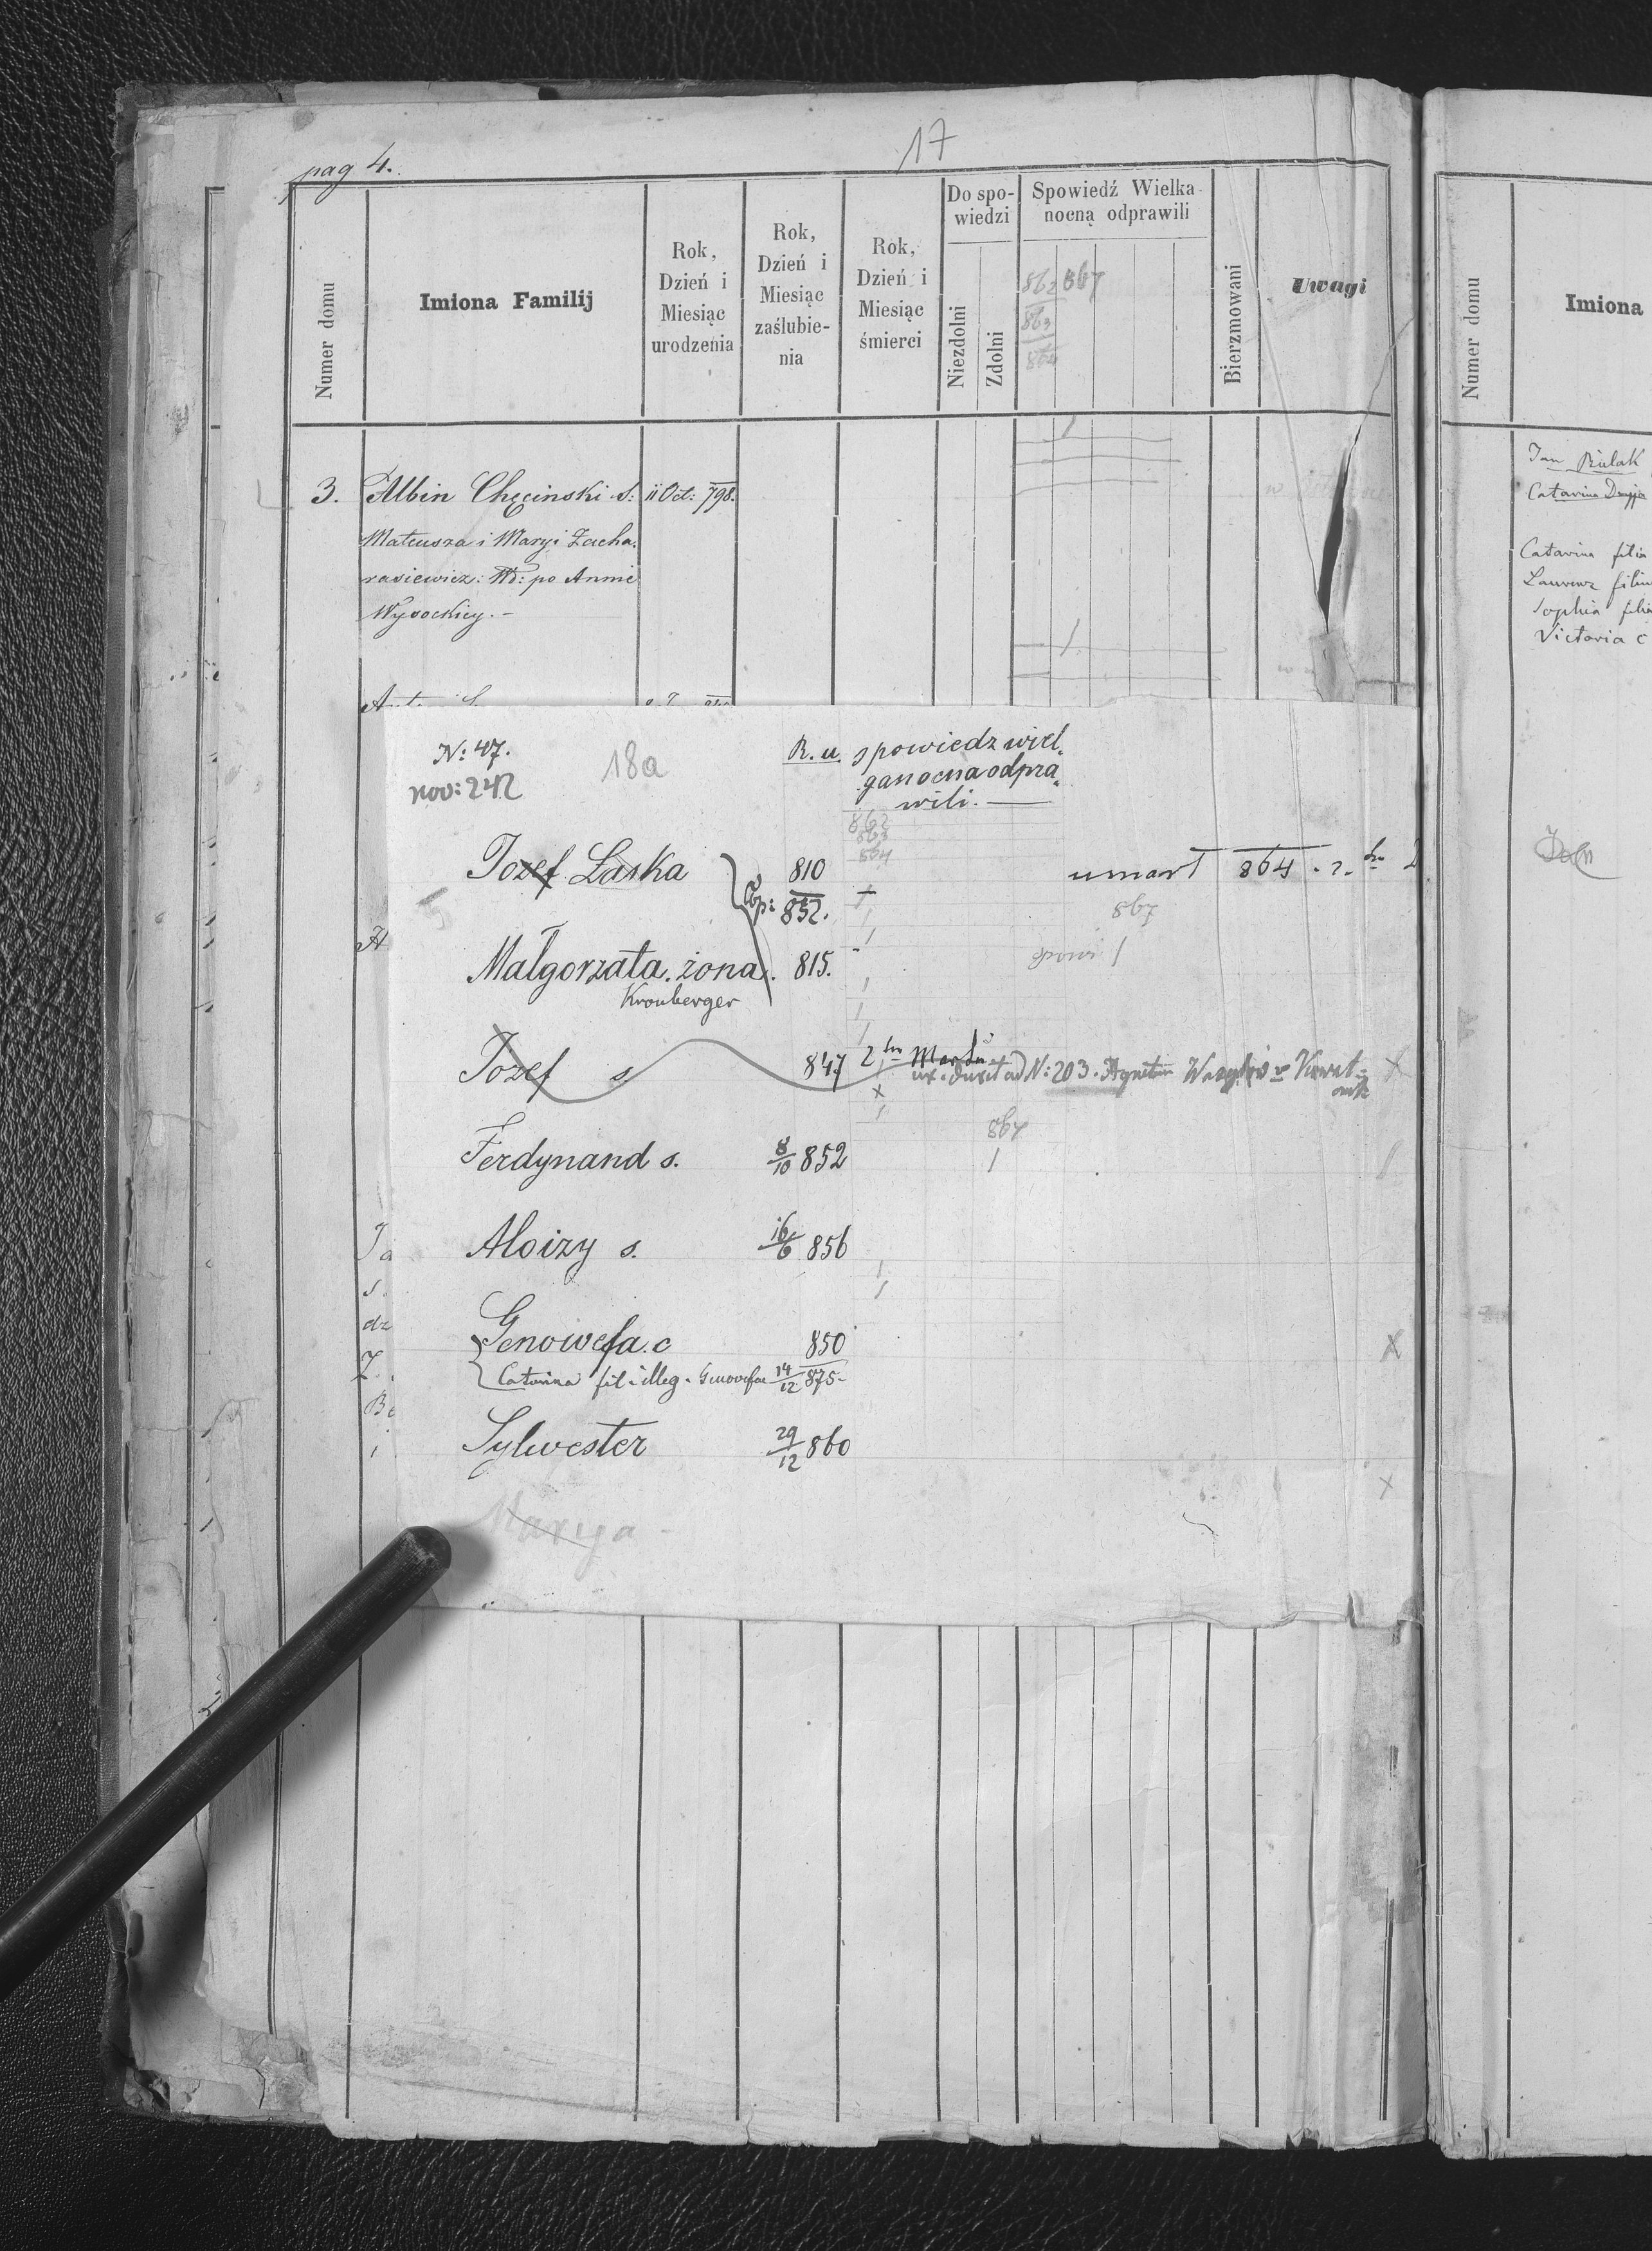 17
pag 4.
Numer domu
Imiona Familij
Rok, Dzień i Miesiąc urodzenia
Rok, Dzień i Miesiąc zaślubie-nia
Rok, Dzień i Miesiąc śmierci
Do spo-wiedzi
Niezdolni
Zdolni
Spowiedź Wielka nocną odprawili
862 867
863
864
Bierzmowani
Uwagi
3. Albin Chęcinski S: 11 Oct: 798.
Mateusza i Maryi Zacha-
rasiewicz: Wd: po Annie
Wysockiey. -
N: 47.
nov: 242
18a
R. u. spowiedz wiel-
ganocna odpra-
wili. —
862
863
864
Jozef Laska 810 umart 864
Cop: 852.
867
Małgorzata. żona. 815.
Kronberger
Jozef s. 847
ux. duxit ad N: 203. Agnetem
867
Ferdynand s. 8/10 852
Aloizy s. 16/6 856
Genowefa. c 850
Catarina fil. illeg. Genowefae 14/12 875-
Sylwester 29/12 860
Marya
Numer domu
Imiona
Jan Bulak
Catarina
Catarina filia
Laurenz filiu
Sophia filia
Victoria c